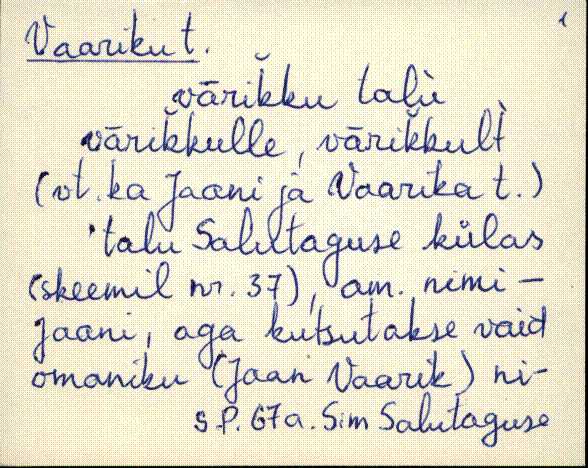 1
Vaariku t.
vārik̆ku talù
vārik̆kulle, vārik̆kul̀t
(vt. ka Jaani ja Vaarika t.)
talu Salutaguse külas
(skeemil nr. 37), am. nimi –
Jaani, aga kutsutakse vaid
omaniku (Jaan Vaarik) ni-
S.P. 67a. Sim Salutaguse